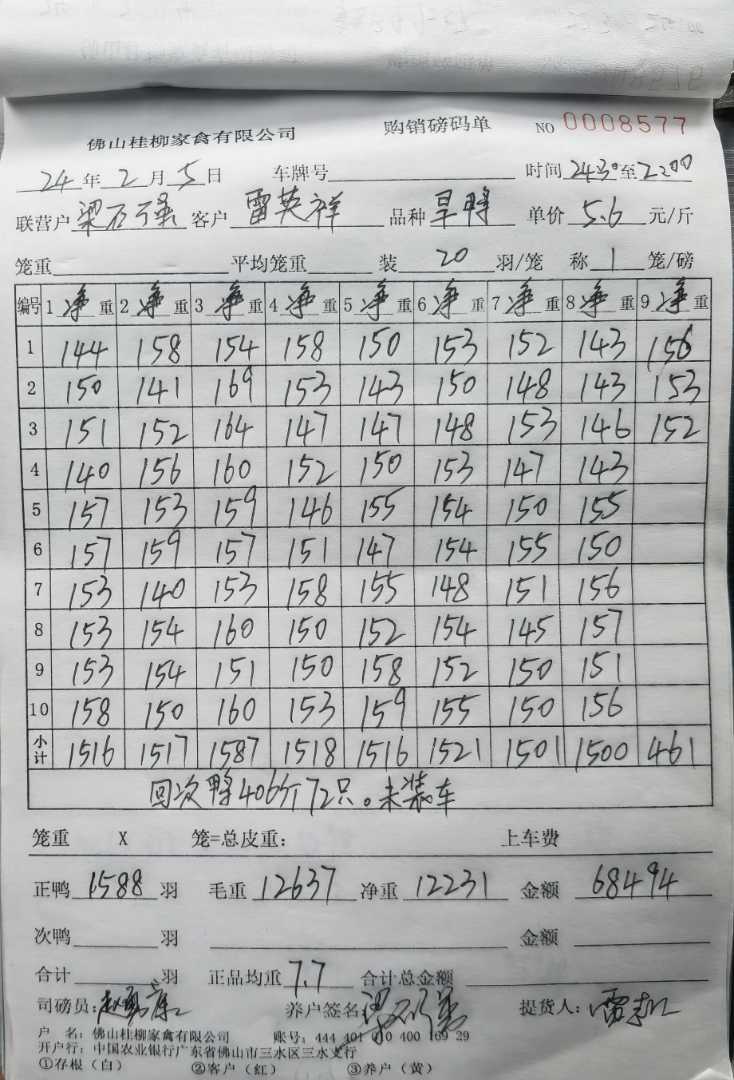 佛山桂柳家禽有限公司 购销磅码单 NO 0008577
24年2月5日 车牌号 时间 2430至2200
联营户 梁石强 客户 雷英祥 品种 旱鸭 单价 5.6 元/斤
笼重 平均笼重 装 20 羽/笼 称 1 笼/磅
编号 1 净重 2 净重 3 净重 4 净重 5 净重 6 净重 7 净重 8 净重 9 净重
1 144 158 154 158 150 153 152 143 156
2 150 141 169 153 143 150 148 143 153
3 151 152 164 147 147 148 153 146 152
4 140 156 160 152 150 153 147 143
5 157 153 159 146 155 154 150 155
6 157 159 157 151 147 154 155 150
7 153 140 153 158 155 148 151 156
8 153 154 160 150 152 154 145 157
9 153 154 151 150 158 152 150 151
10 158 150 160 153 159 155 150 156
小计 1516 1517 1587 1518 1516 1521 1501 1500 461
回次鸭406斤72只。未装车
笼重 X 笼=总皮重: 上车费
正鸭 1588 羽 毛重 12637 净重 12231 金额 68494
次鸭 羽 金额
合计 羽 正品均重 7.7 合计总金额
司磅员: 养户签名 梁石强 提货人:
户 名: 佛山桂柳家禽有限公司 账号: 444 401 010 400 169 29
开户行: 中国农业银行广东省佛山市三水区三水支行
①存根(白) ②客户(红) ③养户(黄)